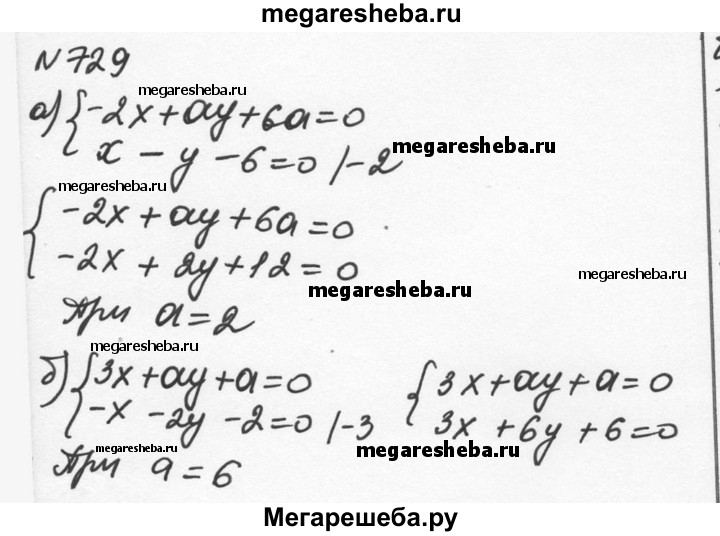 megaresheba.ru
N729
megaresheba.ru
а) {-2x+ay+6a=0
x-y-6=0 /-2
megaresheba.ru
megaresheba.ru
{-2x+ay+6a=0
-2x+2y+12=0
megaresheba.ru
megaresheba.ru
При a=2
megaresheba.ru
б) {3x+ay+a=0 {3x+ay+a=0
-x-2y-2=0 /-3 3x+6y+6=0
megaresheba.ru
megaresheba.ru
При a=6
Мегарешеба.ру